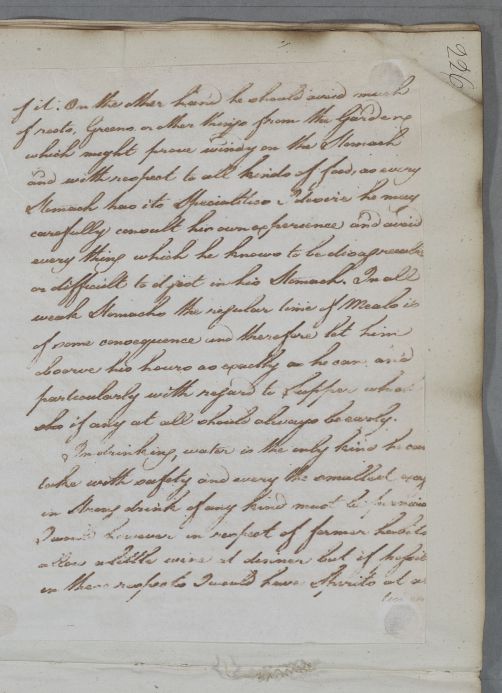 226
of it. On the other hand he should avoid much
of roots, Greens or other things from the Garden
which might prove windy on the Stomach
and with respect to all kinds of food, as every
Stomach has its Specialities I desire he may
carefully consult his own experience and avoid
every thing which he knows to be disagreeable
or difficult to digest in his Stomach. In all
weak Stomachs the regular time of Meals is
of some consequence and therefore let him
observe his hours as exactly as he can and
particularly with regard to Supper which
also if any at all should always be early.
In drinking, water is the only kind he can
take with safety and every the smallest
in Strong drink of any kind must be
I would however in respect of former habits
allow a little wine at dinner but if
in these respects I would have Spirits at a